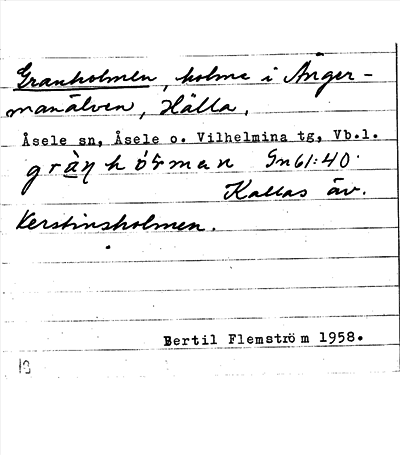 Granholmen, holme i Ånger-
manälven, Hälla.
Åsele sn, Åsele o. Vilhelmina tg, Vb.l.
Gm61:40.
Kallas äv.
Kerstinsholmen.
Bertil Flemström 1958.